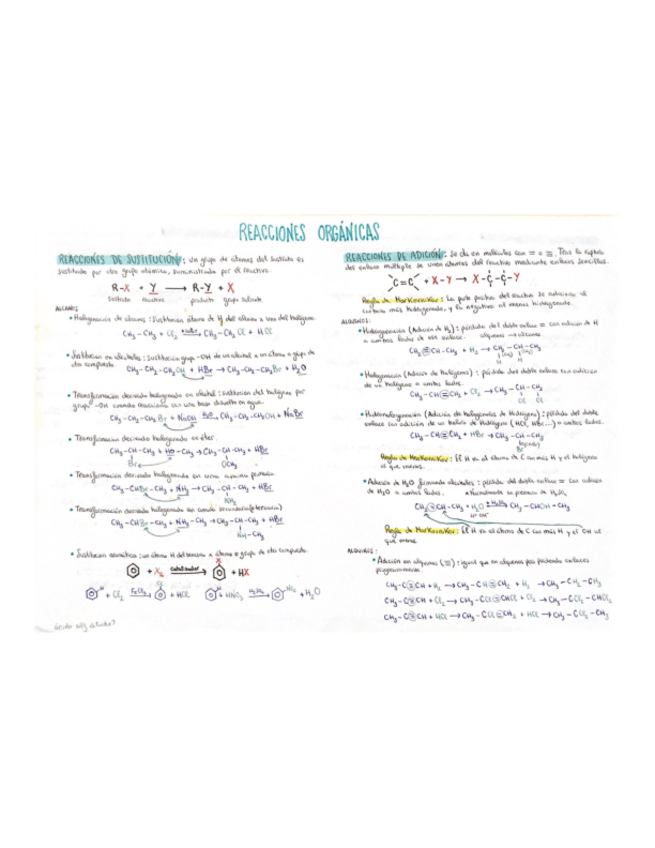 REACCIONES ORGÁNICAS
REACCIONES DE SUSTITUCIÓN: un grupo de átomos del sustrato es
sustituido por otro grupo atómico, suministrado por el reactivo.
R-X + Y → R-Y + X
sustrato reactivo producto grupo saliente
ALCANOS
• Halogenación de alcanos: Sustitución átomo de H del alcano x uno del halógeno
CH3-CH3 + Cl2 → CH3-CH2Cl + HCl
• Sustitución en alcoholes: Sustitución grupo -OH de un alcohol x un átomo o grupo de
otro compuesto.
CH3-CH2-CH2OH + HBr → CH3-CH2-CH2Br + H2O
• Transformación derivado halogenado en alcohol: sustitución del halógeno por
grupo -OH cuando reacciona con una base disuelta en agua.
CH3-CH2-CH2Br + NaOH → CH3-CH2-CH2OH + NaBr
• Transformación derivado halogenado en éter.
CH3-CH-CH3 + → CH3-CH-CH3 + HBr
Br OCH3
• Transformación derivado halogenado en una amina primaria
CH3-CHBr-CH3 + NH3 → CH3-CH-CH3 + HBr
NH2
• Transformación derivado halogenado en amina secundaria
CH3-CHBr-CH3 + NH2-CH3 → CH3-CH-CH3 + HBr
NH-CH3
• Sustitución aromática: un átomo H del benceno x átomo o grupo de otro compuesto.
+ X2 catalizador → X + HX
H + Cl2 FeCl3 → Cl + HCl
H + HNO3 H2SO4 → NO2 + H2O
REACCIONES DE ADICIÓN: Se da en moléculas con = o ≡. Tras la ruptura
del enlace múltiple se unen átomos del reactivo mediante enlaces sencillos.
C=C + X-Y → X-C-C-Y
Regla de Markovnikov: La parte positiva del reactivo se adiciona al
carbono más hidrogenado, y la negativa al menos hidrogenado.
ALQUENOS:
• Hidrogenación (Adición de H2): pérdida del doble enlace = con adición de H
a ambos lados de ese enlace. alqueno → alcano
CH2=CH-CH3 + H2 → CH2-CH-CH3
• Halogenación (Adición de halógenos): pérdida del doble enlace con adición
de un halógeno a ambos lados.
CH3-CH=CH2 + Cl2 → CH3-CH-CH2
Cl Cl
• Hidrohalogenación (Adición de halogenuros de hidrógeno): pérdida del doble
enlace con adición de un haluro de hidrógeno (HCl, HBr...) a ambos lados.
CH3-CH=CH2 + HBr → CH3-CH-CH3
Br
Regla de Markovnikov: El H va al átomo de C con más H y el halógeno
al que menos.
• Adición de H2O formando alcoholes: pérdida del doble enlace = con adición
de H2O a ambos lados. • Normalmente en presencia de H2SO4
CH2=CH-CH3 + H2O H2SO4 → CH3-CHOH-CH3
H+ OH-
Regla de Markovnikov: El H va al átomo de C con más H y el OH al
que menos.
ALQUINOS:
• Adición en alquinos (≡): igual que en alquenos pero perdiendo enlaces
progresivamente.
CH3-C≡CH + H2 → CH3-CH=CH2 + H2 → CH3-CH2-CH3
CH3-C≡CH + Cl2 → CH3-CCl=CHCl + Cl2 → CH3-CCl2-CHCl2
CH3-C≡CH + HCl → CH3-CCl=CH2 + HCl → CH3-CCl2-CH3